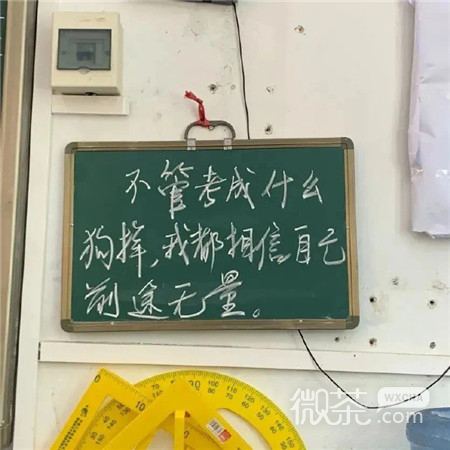 不管考成什么
狗样,我都相信自己
前途无量。
微茶
WXCHA
.com